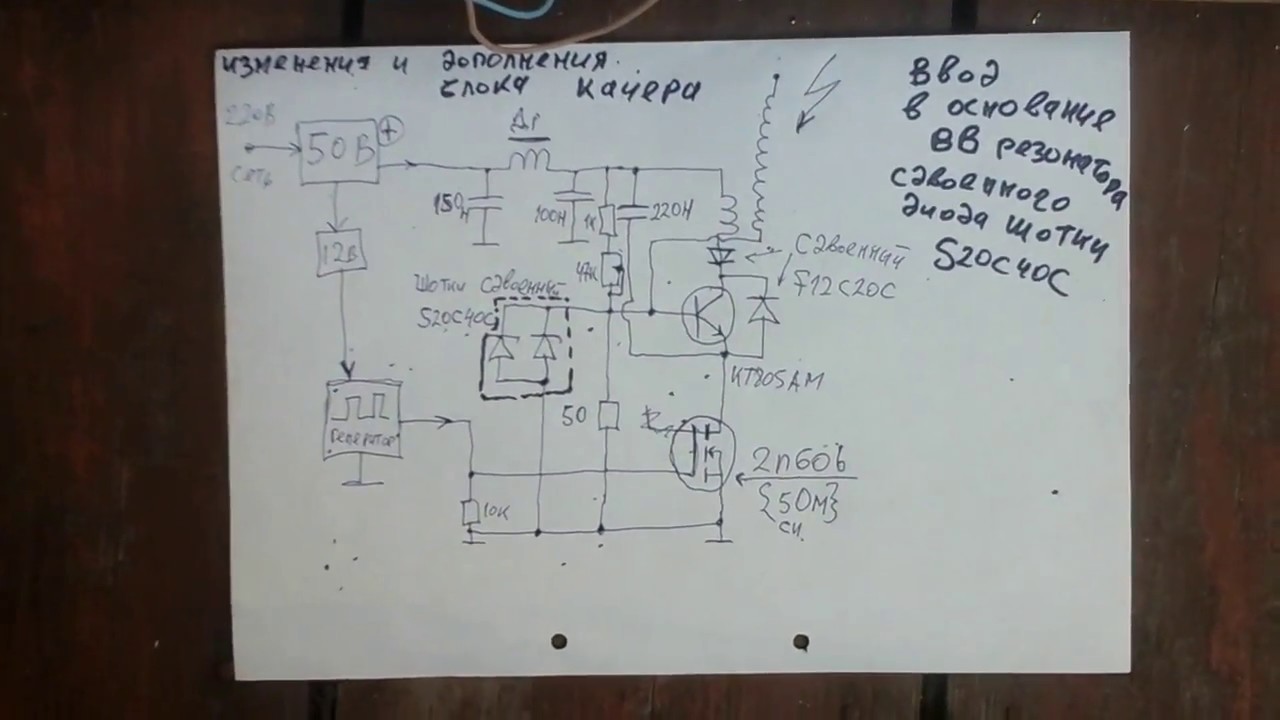 изменения и дополнения
блока качера
Ввод
в основание
ВВ резонатора
сдвоенного
диода шотки
S20C40C
220В
сеть
50В
+
Др
12В
150н
100н
1к
220н
47к
сдвоенний
F12C20C
шотки сдвоенний
S20C40C
КТ805АМ
50
Генератор
10к
2П60Б
{50м}
си